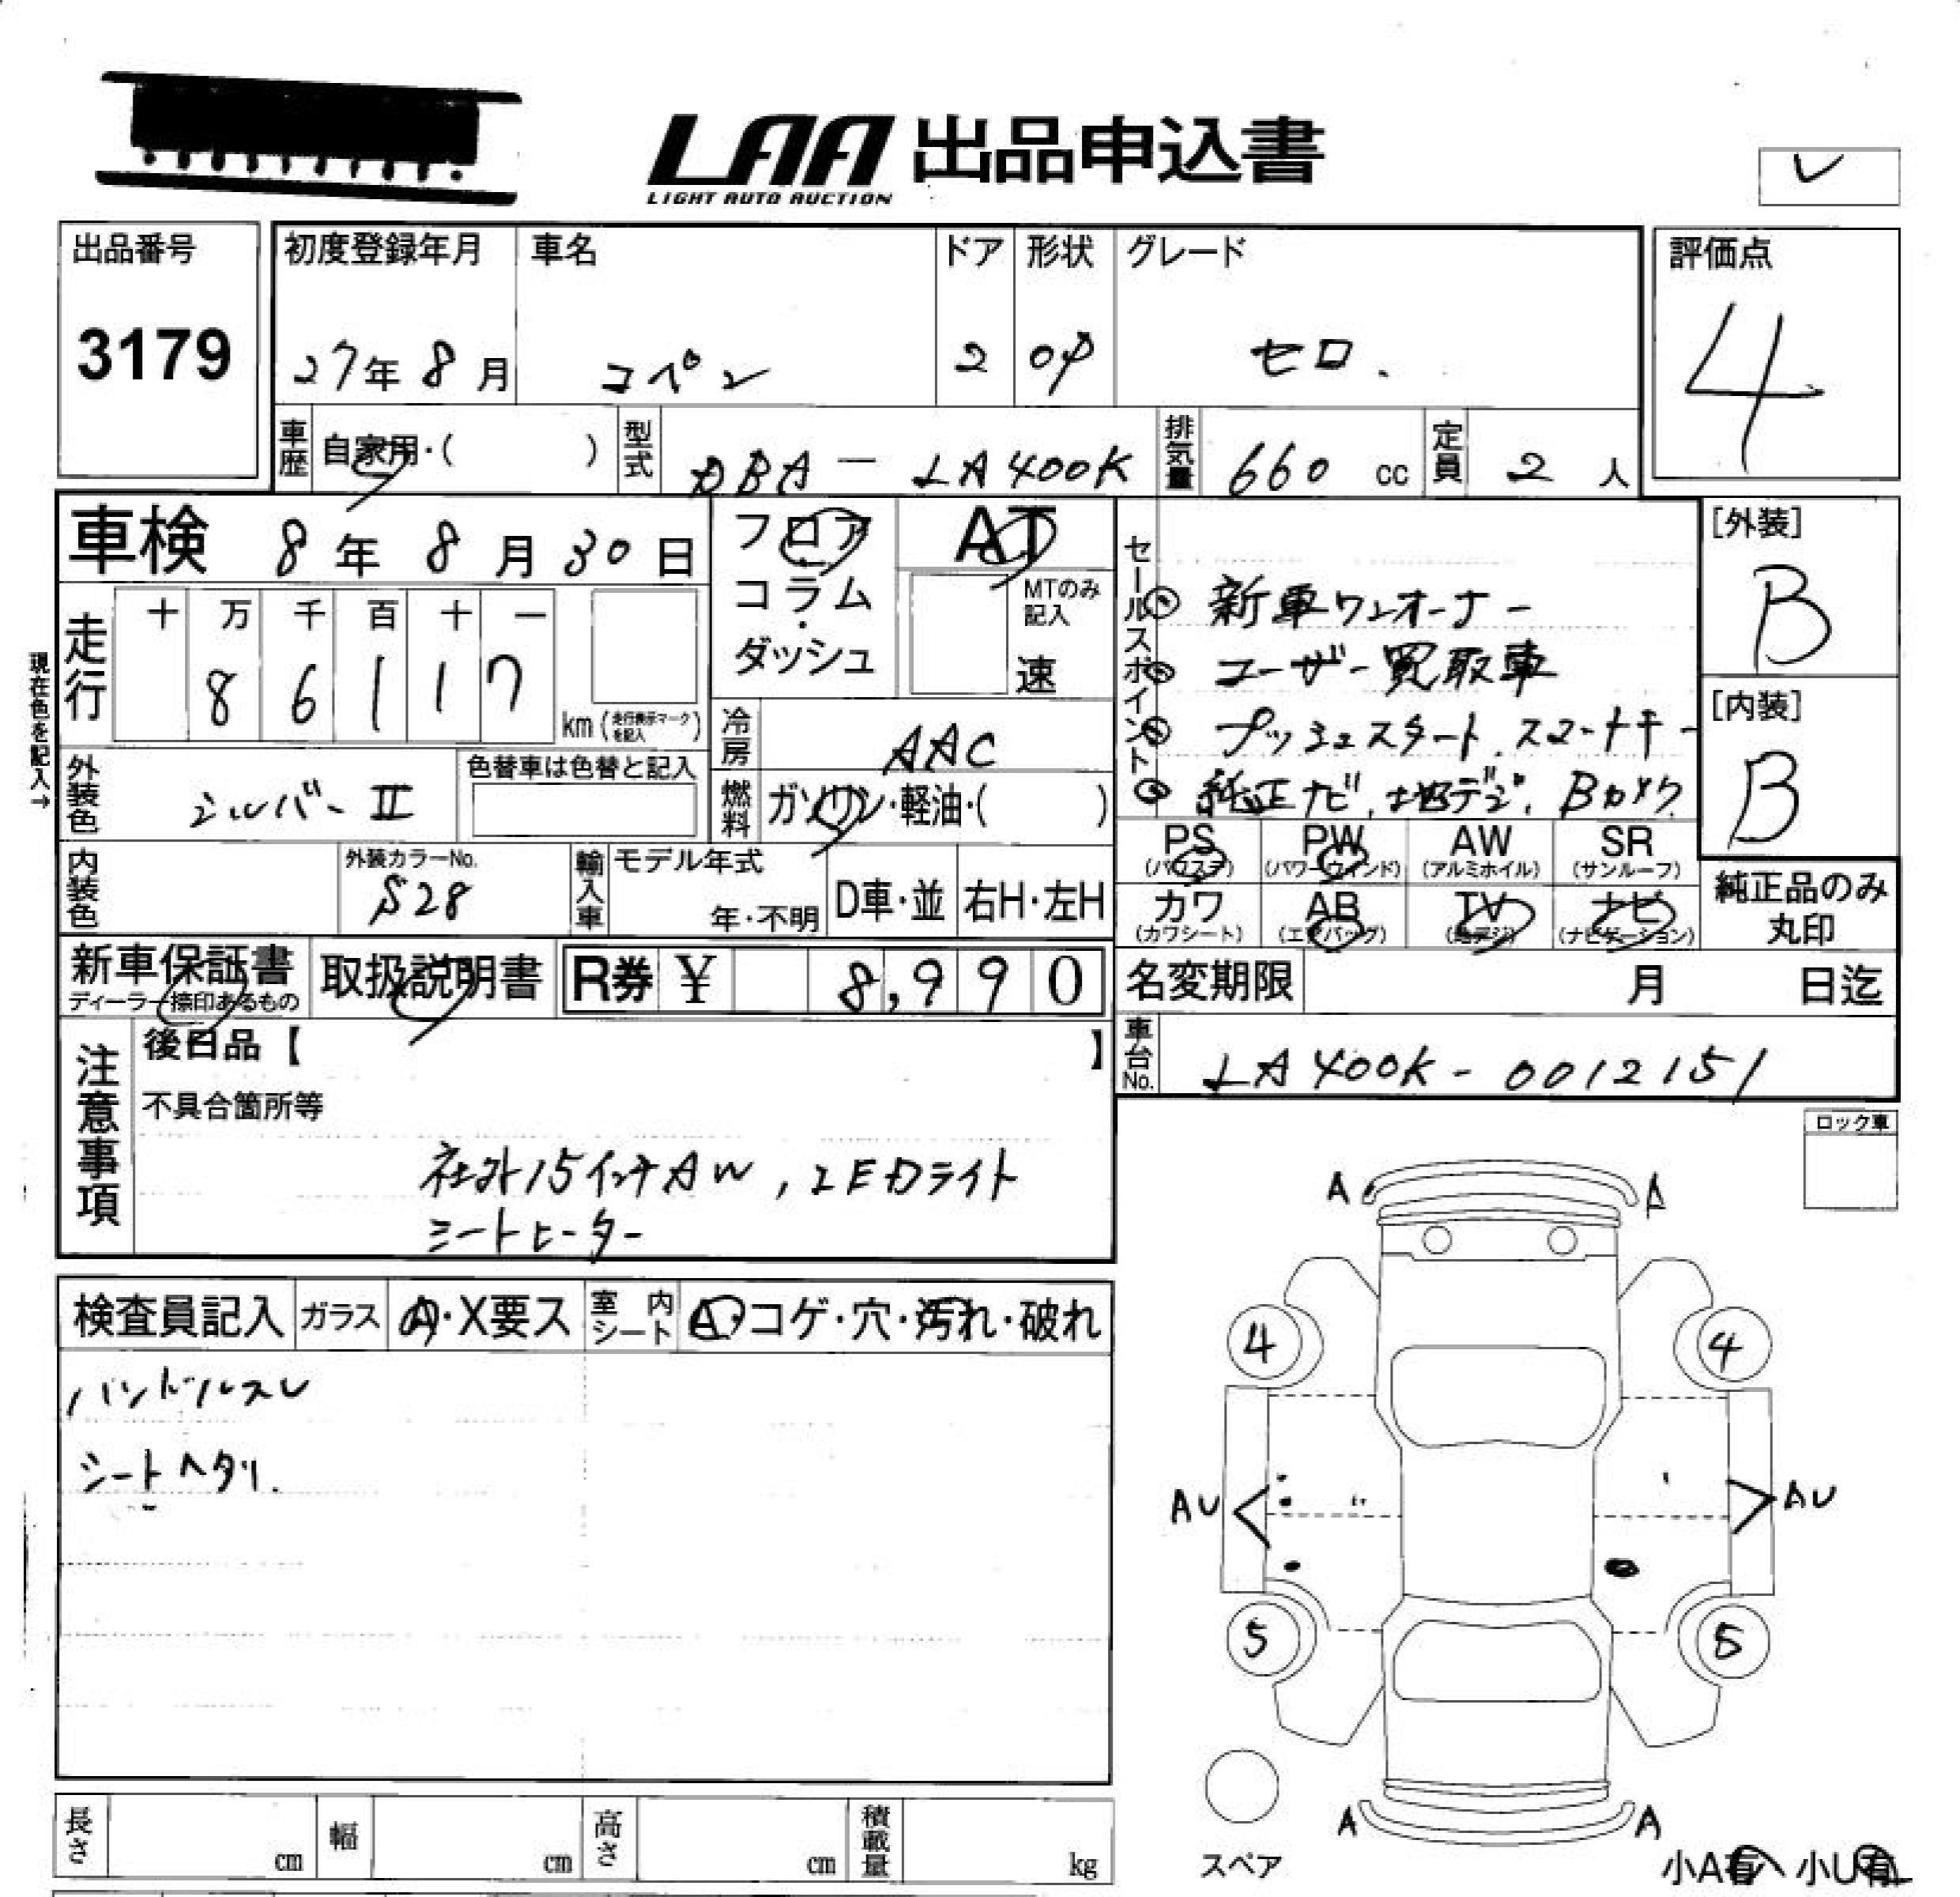 LAA 出品申込書
LIGHT AUTO AUCTION
レ
出品番号
3179
初度登録年月
27年 8月
車名
コペン
ドア
2
形状
OP
グレード
セロ.
評価点
4
車歴 自家用・( )
型式 DBA-LA400K
排気量 660 cc
定員 2 人
車検 8年 8月 30日
フロア・コラム・ダッシュ
AT
MTのみ記入
速
現在色を記入→
走行
十 万 千 百 十 一
8 6 1 1 7
km (走行表示マークを記入)
冷房 AAC
外装色 シルバーII
色替車は色替と記入
燃料 ガソリン・軽油・( )
内装色
外装カラーNo.
S28
輸入車
モデル年式
年・不明
D車・並
右H・左H
セールスポイント
◎ 新車ワンオーナー
◎ ユーザー買取車
◎ プッシュスタート、スマートキー
◎ 純正ナビ、地デジ、Bカメラ
[外装]
B
[内装]
B
PS (パワステ)
PW (パワーウインド)
AW (アルミホイル)
SR (サンルーフ)
カワ (カワシート)
AB (エアバッグ)
TV (地デジ)
ナビ (ナビゲーション)
純正品のみ丸印
新車保証書
ディーラー捺印あるもの
取扱説明書
R券 ¥ 8,990
名変期限 月 日迄
車台No. LA400K-0012151
注意事項
後日品【 】
不具合箇所等
社外15インチAW, LEDライト
シートヒーター
ロック車
検査員記入
ガラス A・X要ス
室内シート A・コゲ・穴・汚れ・破れ
ハンドルスレ
シートヘタリ.
A A
4 4
AU AU
5 5
A A
スペア
小A有 小U有
長さ cm
幅 cm
高さ cm
積載量 kg